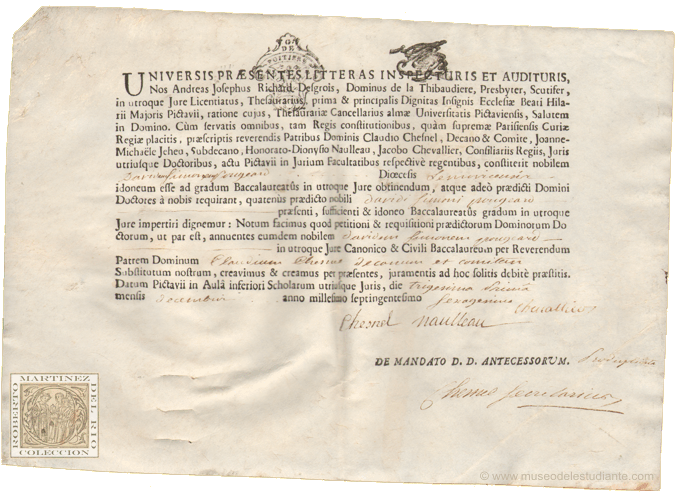 G DE
POITIERS
UNIVERSIS PRÆSENTES LITTERAS INSPECTURIS ET AUDITURIS,
Nos Andreas Josephus Richard Desgrois, Dominus de la Thibaudiere, Presbyter, Scutifer,
in utroque Jure Licentiatus, Thesaurarius, prima & principalis Dignitas Insignis Ecclesiæ Beati Hila-
rii Majoris Pictavii, ratione cujus, Thesaurariæ Cancellarius almæ Universitatis Pictaviensis, Salutem
in Domino. Cùm servatis omnibus, tam Regis constitutionibus, quàm supremæ Parisiensis Curiæ
Regiæ placitis, præscriptis reverendis Patribus Dominis Claudio Chesnel, Decano & Comite, Joanne-
Michaële Jcheu, Subdecano, Honorato-Dionysio Naulleau, Jacobo Chevallier, Consiliariis Regiis, Juris
utriusque Doctoribus, actu Pictavii in Jurium Facultatibus respectivè regentibus, constiterit nobilem
Davidem Simonem Diœcesis
idoneum esse ad gradum Baccalaureatûs in utroque Jure obtinendum, atque adeò prædicti Domini
Doctores à nobis requirant, quatenus prædicto nobili Davidi Simoni
præsenti, sufficienti & idoneo Baccalaureatûs gradum in utroque
Jure impertiri dignemur: Notum facimus quod petitioni & requisitioni prædictorum Dominorum Do-
ctorum, ut par est, annuentes eumdem nobilem Davidem Simonem
in utroque Jure Canonico & Civili Baccalaureum per Reverendum
Patrem Dominum Claudium Chesnel decanum et comitem
Substitutum nostrum, creavimus & creamus per præsentes, juramentis ad hoc solitis debitè præstitis.
Datum Pictavii in Aulâ inferiori Scholarum utriusque Juris, die trigesima prima
mensis decembris anno millesimo septingentesimo sexagesimo
Chesnel Naulleau Chevallier
DE MANDATO D. D. ANTECESSORUM.
Thomas Secretarius
ROBERTO MARTINEZ DEL RIO
COLECCION
© www.museodelestudiante.com